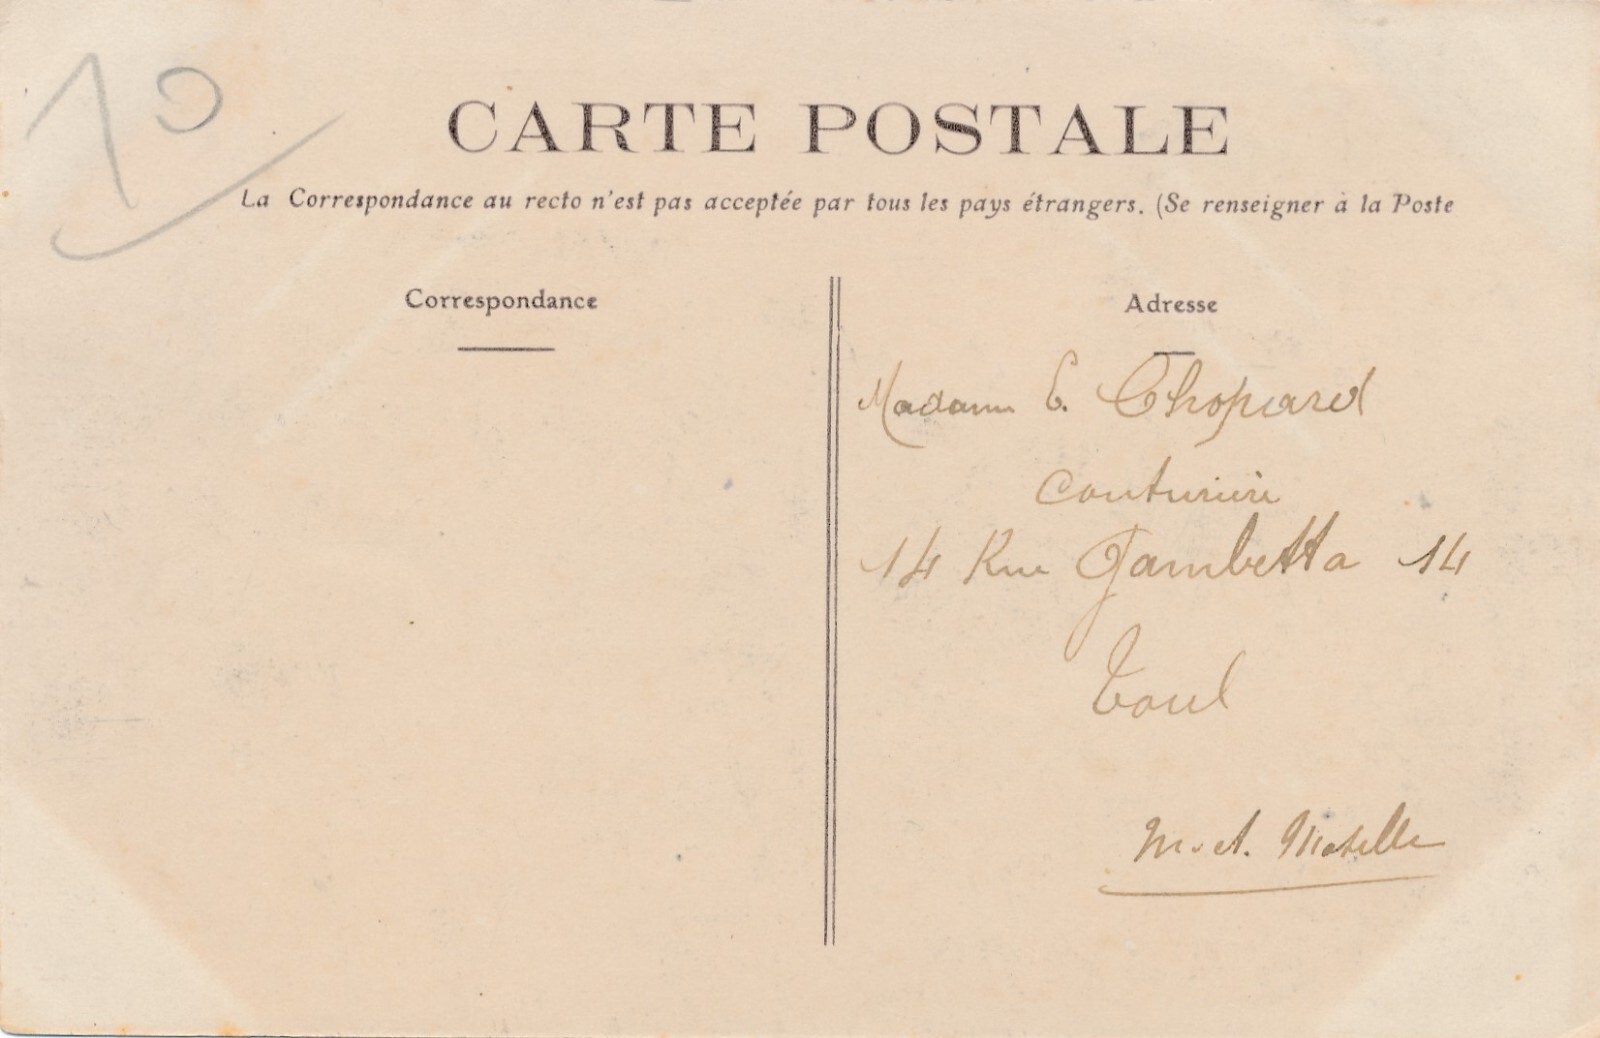 10
CARTE POSTALE
La Correspondance au recto n'est pas acceptée par tous les pays étrangers. (Se renseigner à la Poste
Correspondance
Adresse
Madame E. Chopard
Couturière
14 Rue Gambetta 14
Toul
M. et. Moselle